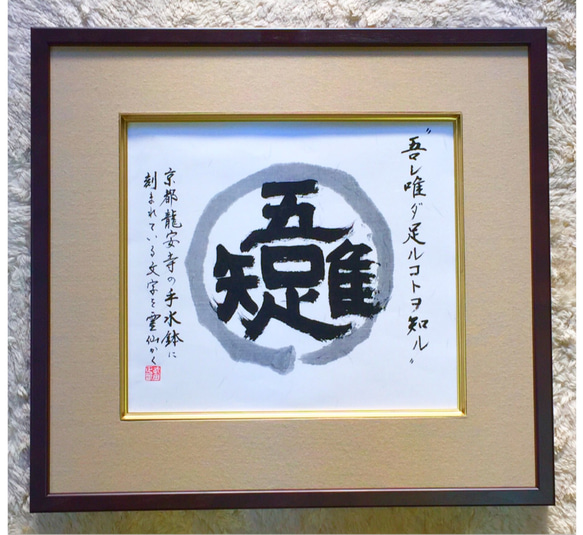 "吾レ唯ダ足ルコトヲ知ル"
五
隹
疋
矢
口
京都龍安寺の手水鉢に
刻まれている文字を 雲仙かく